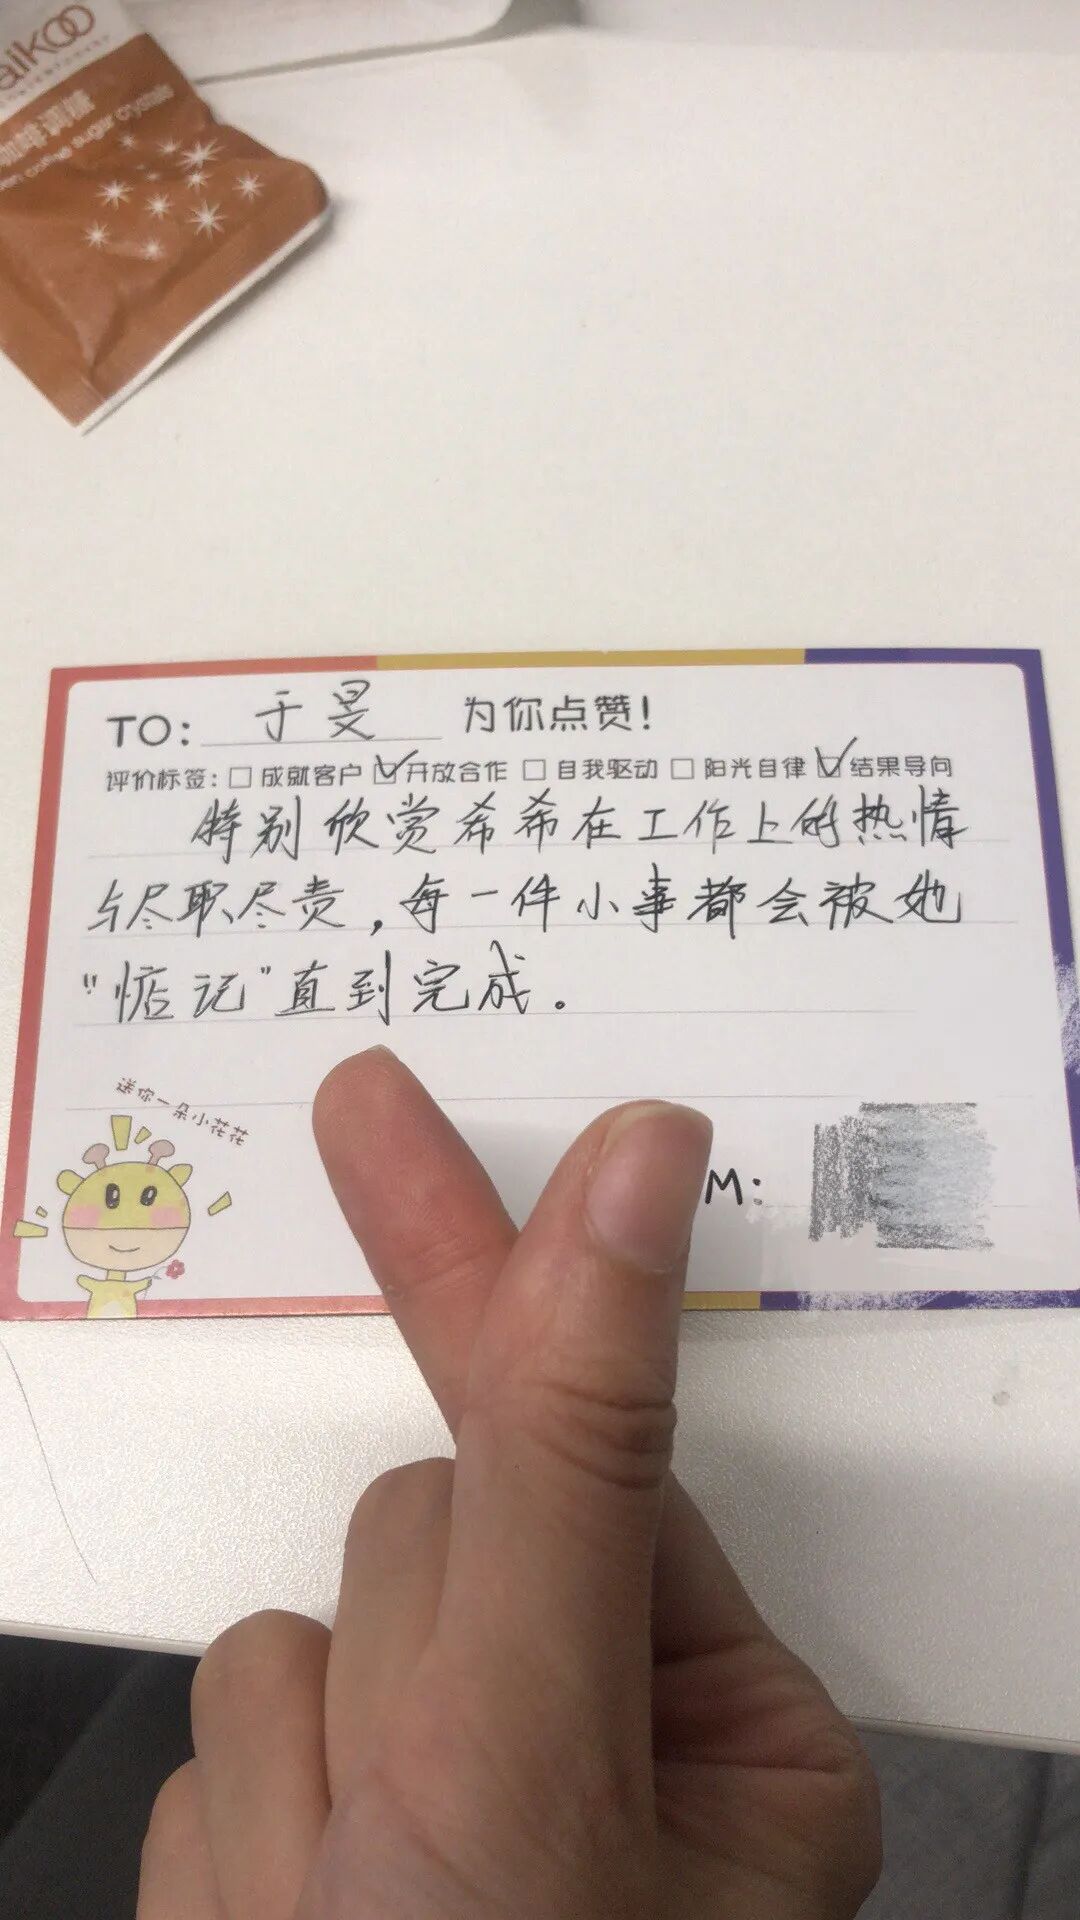 aikoo
咖啡调糖
coffee sugar crystals
TO: 于旻 为你点赞!
评价标签: □ 成就客户 ☑ 开放合作 □ 自我驱动 □ 阳光自律 ☑ 结果导向
特别欣赏希希在工作上的热情
与尽职尽责,每一件小事都会被她
"惦记"直到完成。
送你一朵小花花
M: